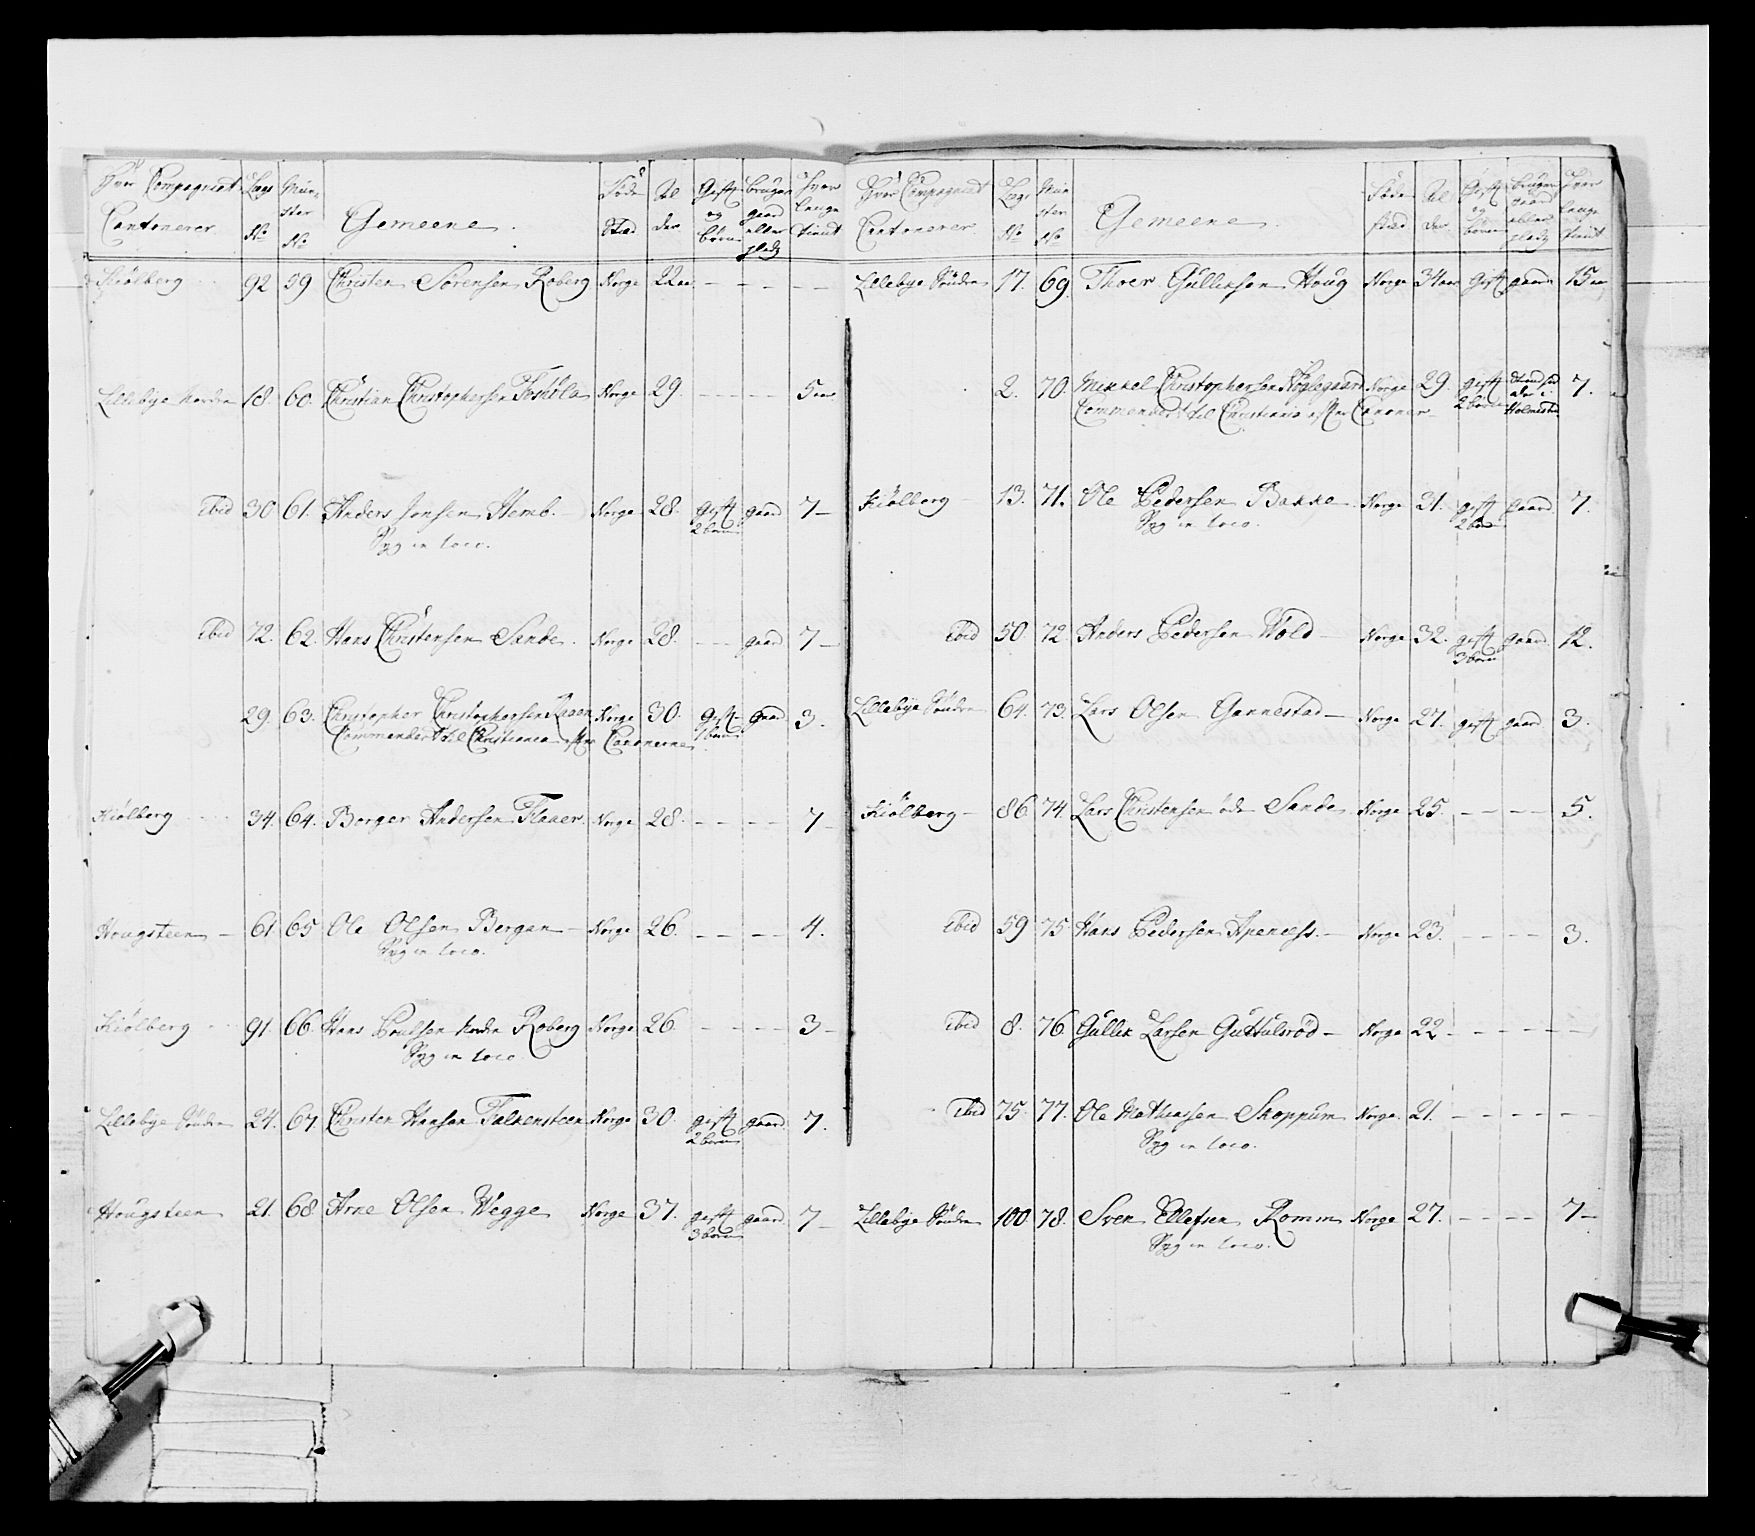 Hvor Compagniet Cantonerer | Lægs No | Mün-ster No | Gemeene. | Føde Stæd | Al der | Gift og børn | bruger gaard eller pladz | Hvor længe tient
Kiølberg | 92 | 59 | Christen Sørensen Roberg | Norge | 22 aar | - - - - -
Lillebye Nordre | 18. | 60. | Christian Christophersen | Norge | 29. | - - - - | 5 aar
Ibid | 30 | 61. | Anders Jonsen Hemb. | Norge | 28. | gift 2 børn | gaard | 7 -
Syg in loco.
Ibid | 72. | 62. | Hans Christensen Sande. | Norge | 28. | - - | gaard | 7 -
29. | 63. | Christopher Christophersen Raaen | Norge | 30. | gift 1 barn | gaard | 3.
Commandert til Christiania efter Canonerne
Kiølberg | 34. | 64. | Borger Andersen Flaaer. | Norge | 28. | - - - - | 7 -
Hougsteen - | 61 | 65 | Ole Olsen Bergan - | Norge | 26. | - - - - | 4.
Syg in loco.
Kiølberg | 91. | 66. | Hans Poulsen Nordre Roberg | Norge | 26. | - - - - | 3 -
Syg in loco
Lillebye Søndre | 24. | 67. | Christen Hansen Falkensteen | Norge | 30. | gift 2 børn | gaard. | 7.
Hougsteen | 21. | 68. | Arne Olsen Wegge | Norge | 37. | gift 3 børn | gaard. | 7 -
Hvor Compagniet Cantonerer | Lægs No | Mün ster No | Gemeene. | Føde stæd | Al der | Gift og børn | bruger gaard eller pladz | Hvor længe tient
Lillebye Søndre | 17. | 69. | Thoer Gulliksen Houg | Norge | 34 aar | Gift | gaard | 15 aar
2. | 70. | Mikkel Christophersen | Norge | 29. | gift 2 børn | Holmestr. | 7.
Commandert til Christiania efter Canoner -
Kiølberg | 13. | 71. | Ole Pedersen Bakke | Norge | 31. | gift 2 børn | gaard | 7.
Syg in loco.
Ibid | 50. | 72 | Anders Pedersen Wold - | Norge | 32. | gift 3 børn | gaard | 12.
Lillebye Søndre | 64. | 73. | Lars Olsen Gannestad - | Norge | 27. | gift | gaard | 3.
Kiølberg - | 86. | 74. | Lars Christensen Sande | Norge | 25. | - - - - | 5.
Ibid | 59 | 75. | Hans Pedersen Apeness. - | Norge | 23. | - - - - | 3.
Ibid | 8. | 76 | Gullik Larsen Guttulsrød - | Norge | 22 - | - - - - -
Ibid | 75. | 77. | Ole Mathiassen Skoppum | Norge | 21. | - - - - -
Syg in loco.
Lillebye Søndre | 100 | 78. | Sven Ellefsen Romm | Norge | 27. | - - - - | 7 -
Syg in loco.